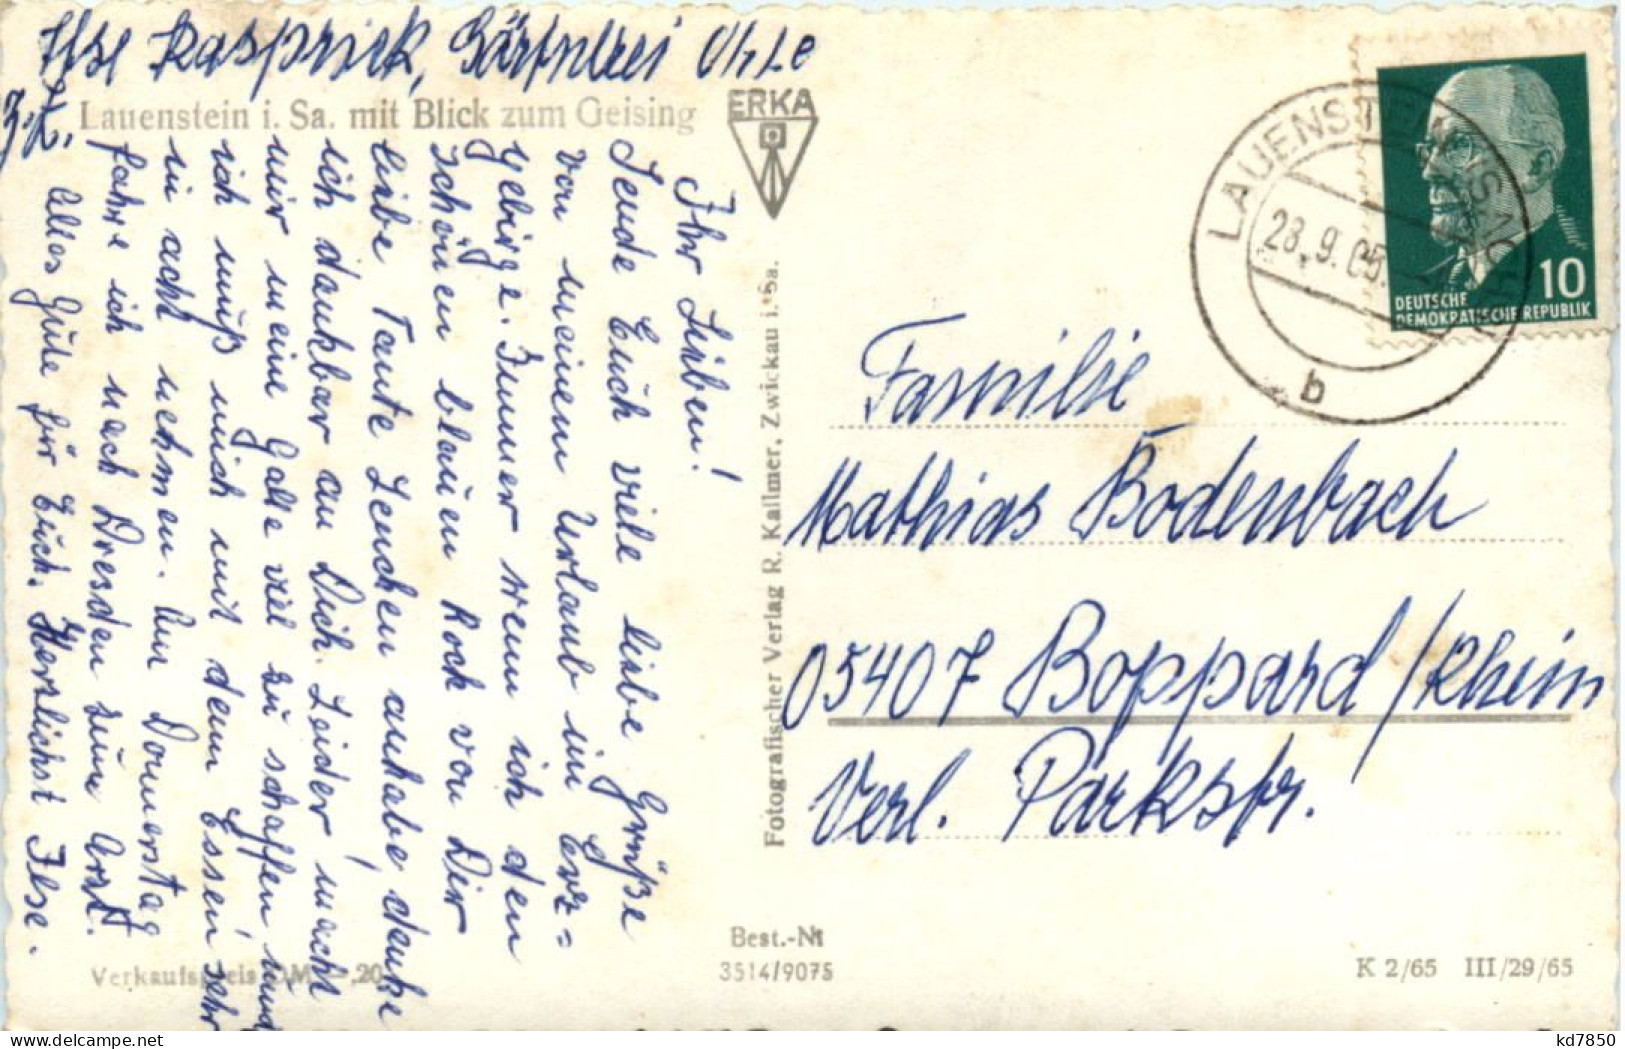 Ilse Kasprick, Gärtnerei
z. Z.
Lauenstein i. Sa. mit Blick zum Geising
ERKA
Ihr Lieben!
Sende Euch viele liebe Grüße
von meinem Urlaub im Erz=
gebirge. Immer wenn ich den
schönen blauen Rock von Dir
liebe Tante Lenchen anhabe, denke
ich dankbar an Dich. Leider macht
mir meine Galle viel zu schaffen, und
ich muß mich mit dem Essen sehr
in acht nehmen. Am Donnerstag
fahre ich nach Dresden zum Arzt.
Alles Gute für Euch. Herzlichst Ilse.
Verkaufspreis DM -,20
Fotografischer Verlag R. Kallmer, Zwickau i. Sa.
Best.-Nr
3514/9075
LAUENSTEIN (SACHS)
28.9.65.
b
10
DEUTSCHE
DEMOKRATISCHE REPUBLIK
Familie
Mathias Bodenbach
05407 Boppard/Rhein
Verl. Parkstr.
K 2/65 III/29/65
kd7850